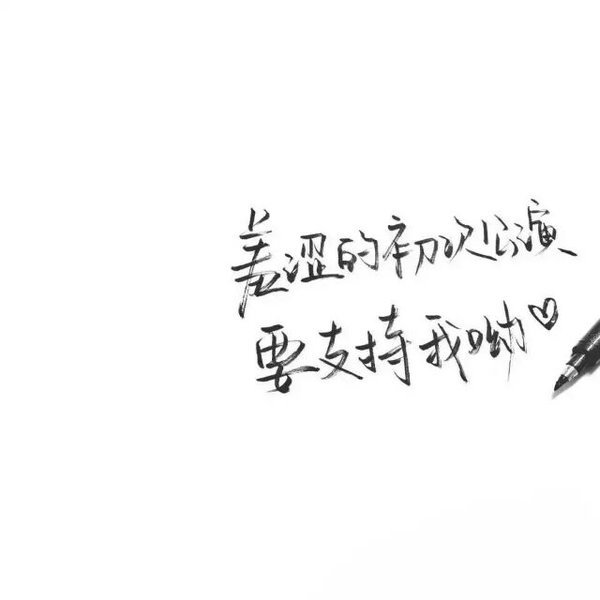 羞涩的初次公演
要支持我呦♡